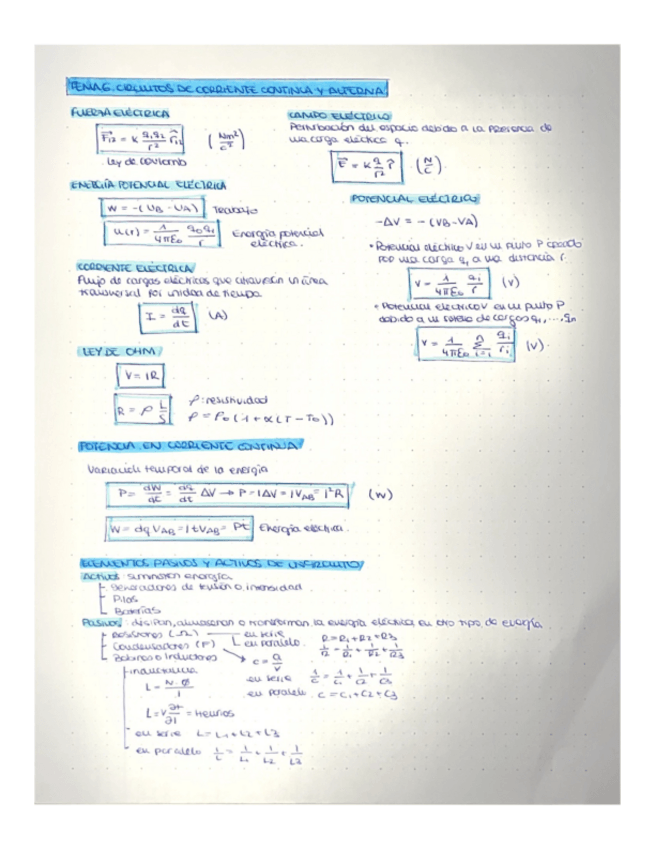 TEMA 6. CIRCUITOS DE CORRIENTE CONTINUA Y ALTERNA
FUERZA ELÉCTRICA
F₁₂ = K q₁q₂/r² r̂₁₂ (Nm²/C²)
Ley de Coulomb
CAMPO ELÉCTRICO
Perturbación del espacio debido a la presencia de
una carga eléctrica q.
E = K q/r² r̂ (N/C).
ENERGÍA POTENCIAL ELÉCTRICA
W = -(UB - UA) Trabajo
U(r) = 1/4πε₀ q₀q₁/r Energía potencial
eléctrica.
POTENCIAL ELÉCTRICO
-ΔV = -(VB-VA)
• Potencial eléctrico V en un punto P creado
por una carga q₁ a una distancia r.
V = 1/4πε₀ q₁/r (V)
• Potencial eléctrico V en un punto P
debido a un sistema de cargas q₁, ..., qn
V = 1/4πε₀ Σ qᵢ/rᵢ (V).
CORRIENTE ELÉCTRICA
Flujo de cargas eléctricas que atraviesan un área
transversal por unidad de tiempo
I = dq/dt (A)
LEY DE OHM
V = IR
R = ρ L/S
ρ: resistividad
ρ = ρ₀(1+α(T-T₀))
POTENCIA EN CORRIENTE CONTINUA
Variación temporal de la energía
P = dW/dt = dq/dt ΔV → P = IΔV = IVAB = I²R (W)
W = dq VAB = I t VAB = Pt Energía eléctrica.
ELEMENTOS PASIVOS Y ACTIVOS DE UN CIRCUITO
Activos: suministran energía
Generadores de tensión o intensidad
Pilas
Baterías
Pasivos: disipan, almacenan o transforman la energía eléctrica en otro tipo de energía.
Resistores (Ω) en serie R = R₁+R₂+R₃
Condensadores (F) en paralelo. 1/R = 1/R₁ + 1/R₂ + 1/R₃
Bobinas o inductores C = Q/V
inductancia
en serie 1/C = 1/C₁ + 1/C₂ + 1/C₃
L = N·Φ/I
en paralelo C = C₁+C₂+C₃
= Henrios
en serie L = L₁+L₂+L₃
en paralelo 1/L = 1/L₁ + 1/L₂ + 1/L₃